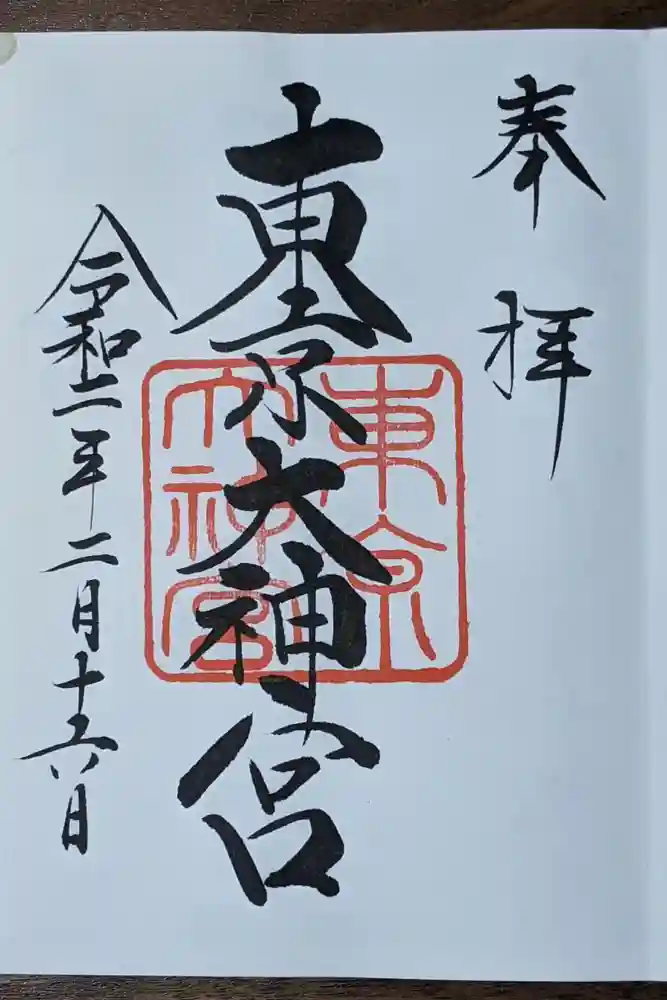 奉拝
東京大神宮
東京
大神宮
令和二年二月十六日